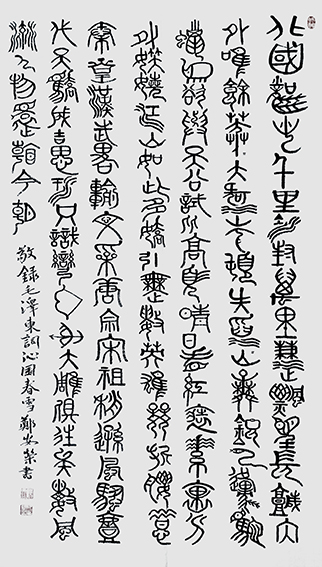 北國風光千里冰封萬里雪飄望長城內
外唯餘莽莽大河上下頓失滔滔山舞銀蛇原馳
蠟象欲與天公試比高須晴日看紅裝素裹分
外妖嬈江山如此多嬌引無數英雄競折腰惜
秦皇漢武略輸文采唐宗宋祖稍遜風騷一
代天驕成吉思汗只識彎弓射大雕俱往矣數風
流人物還看今朝
敬錄毛澤東詞沁園春雪鄭安榮書